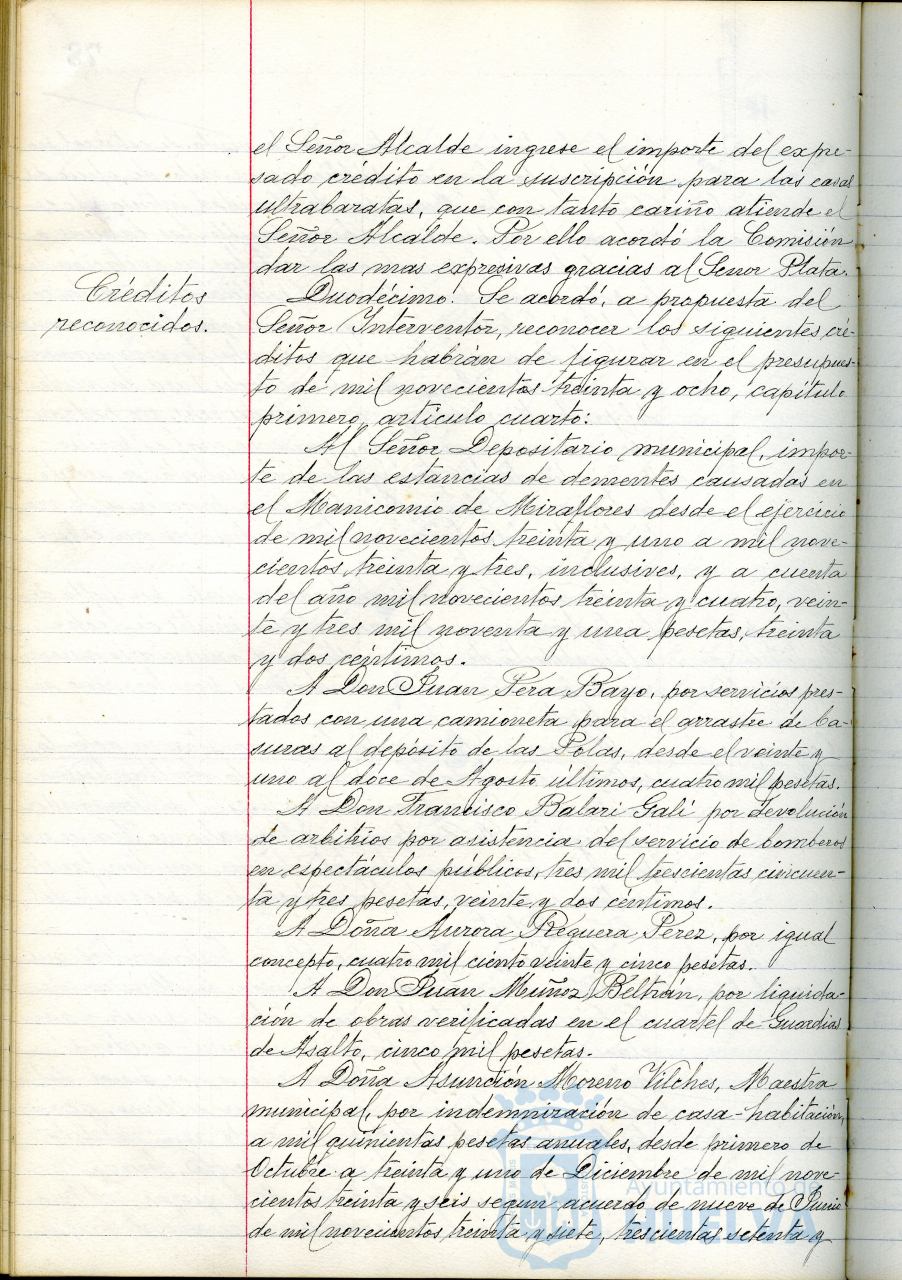 el Señor Alcalde ingrese el importe del expre-
sado crédito en la suscripción para las casas
ultrabaratas, que con tanto cariño atiende el
Señor Alcalde. Por ello acordó la Comisión
dar las mas expresivas gracias al Señor Plata.
Créditos
reconocidos.
Duodécimo. Se acordó, a propuesta del
Señor Interventor, reconocer los siguientes cré-
ditos que habrán de figurar en el presupues-
to de mil novecientos treinta y ocho, capítulo
primero, artículo cuarto:
Al Señor Depositario municipal, impor-
te de las estancias de dementes causadas en
el Manicomio de Miraflores desde el ejercicio
de mil novecientos treinta y uno a mil nove-
cientos treinta y tres, inclusives, y a cuenta
del año mil novecientos treinta y cuatro, vein-
te y tres mil noventa y una pesetas, treinta
y dos céntimos.
A Don Juan Pera Bayo, por servicios pres-
tados con una camioneta para el arrastre de ba-
suras al depósito de las Polas, desde el veinte y
uno al doce de Agosto últimos, cuatro mil pesetas.
A Don Francisco Balari Galí por devolución
de arbitrios por asistencia del servicio de bomberos
en espectáculos públicos, tres mil trescientas cincuen-
ta y tres pesetas, veinte y dos centimos.
A Doña Aurora Reguera Perez, por igual
concepto, cuatro mil ciento veinte y cinco pesetas.
A Don Juan Muñoz Beltrán, por liquida-
ción de obras verificadas en el cuartel de Guardias
de Asalto, cinco mil pesetas.
A Doña Asunción Moreno Vilches, Maestra
municipal, por indemnización de casa-habitación,
a mil quinientas pesetas anuales, desde primero de
Octubre a treinta y uno de Diciembre de mil nove-
cientos treinta y seis segun acuerdo de nueve de Junio
de mil novecientos treinta y siete, trescientas setenta y
Ayuntamiento de
HUELVA